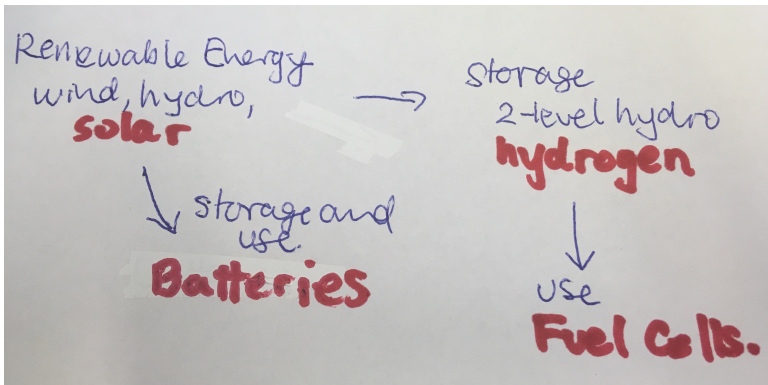 Renewable Energy
wind, hydro,
solar
storage
2-level hydro
hydrogen
storage and
use.
Batteries
use
Fuel Cells.